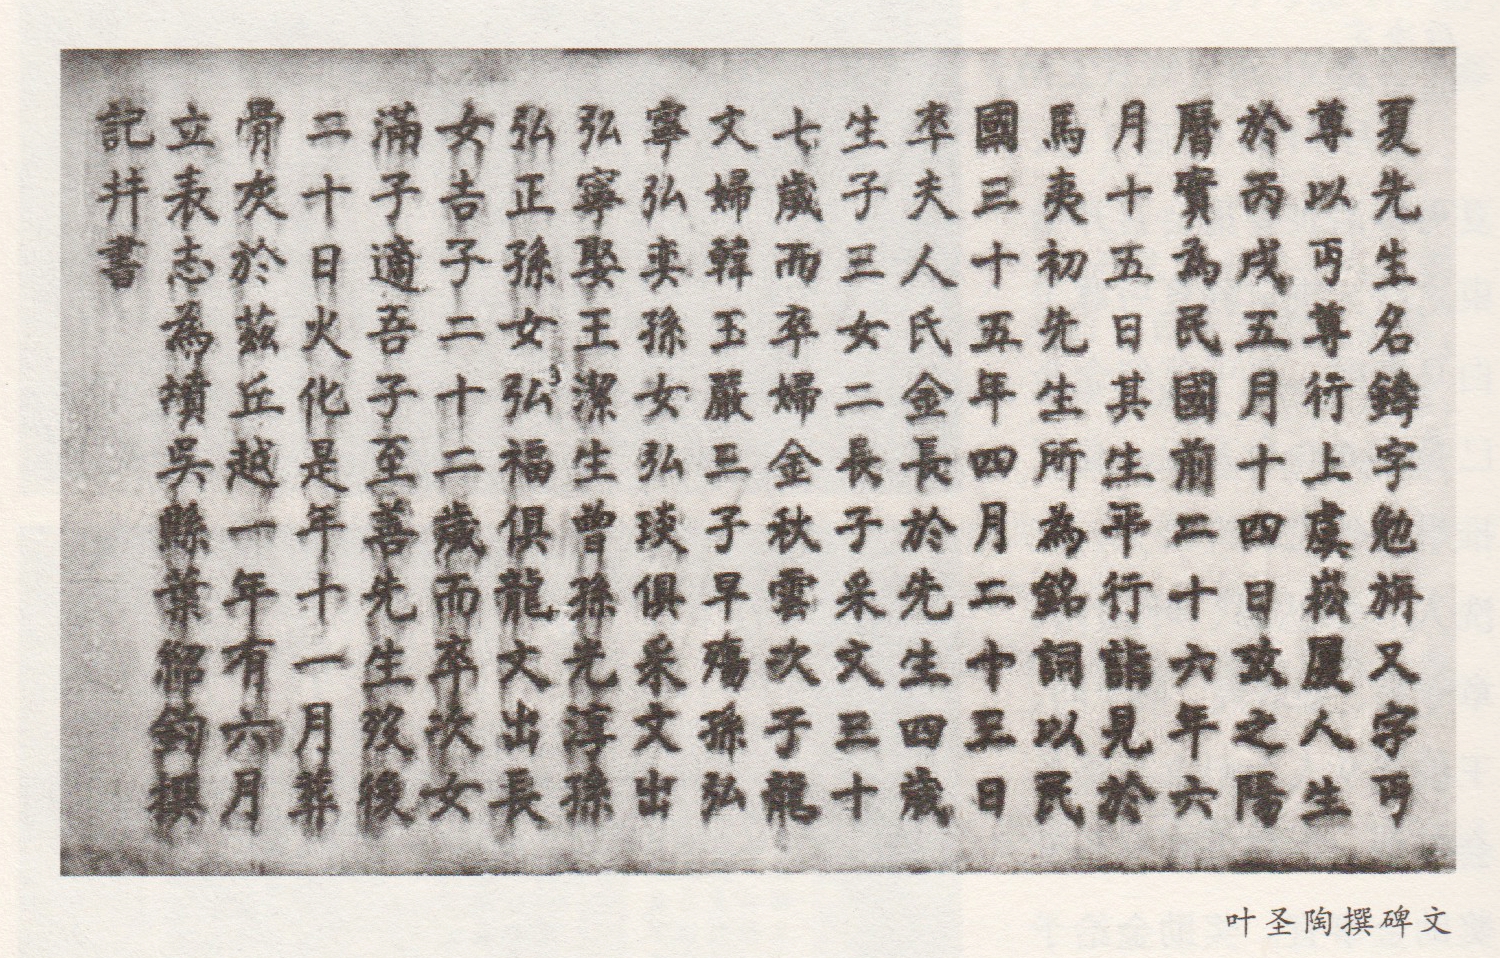 夏先生名鑄字勉旃又字丏
尊以丏尊行上虞崧廈人生
於丙戌五月十四日攷之陽
曆實為民國前二十六年六
月十五日其生平行誼見於
馬夷初先生所為銘詞以民
國三十五年四月二十三日
卒夫人氏金長於先生四歲
生子三女二長子采文三十
七歲而卒婦金秋雲次子龍
文婦韓玉嚴三子早殤孫弘
寧弘奕孫女弘琰俱采文出
弘寧娶王潔生曾孫光淳孫
弘正孫女弘福俱龍文出長
女吉子二十二歲而卒次女
滿子適吾子至善先生歿後
二十日火化是年十一月葬
骨灰於茲丘越一年有六月
立表志為墳吳縣葉紹鈞撰
記并書
叶圣陶撰碑文